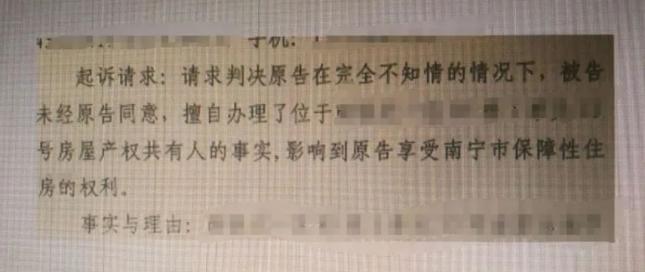 手机:
起诉请求：请求判决原告在完全不知情的情况下，被告
未经原告同意，擅自办理了位于
号房屋产权共有人的事实,影响到原告享受南宁市保障性住
房的权利。
事实与理由：